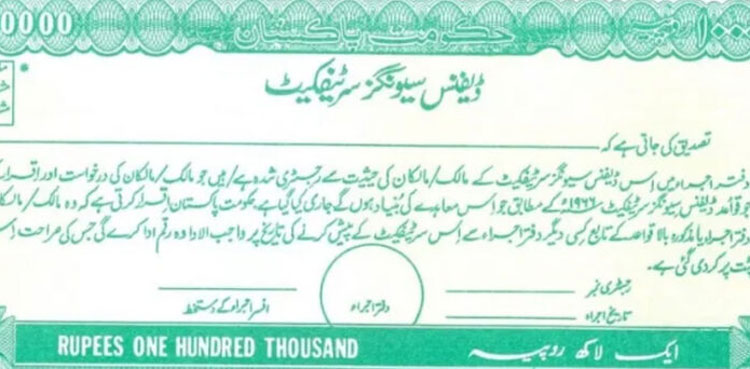 0000 حکومت پاکستان ۱۰۰ روپیہ
ڈیفنس سیونگز سرٹیفکیٹ
تصدیق کی جاتی ہے کہ
دفتر اجراء میں اس ڈیفنس سیونگز سرٹیفکیٹ کے مالک/مالکان کی حیثیت سے رجسٹری شدہ ہے/ہیں جو مالک/مالکان کی درخواست اور اقرار
قواعد ڈیفنس سیونگز سرٹیفکیٹ ۱۹۶۶ء کے مطابق جو اس معاہدے کی بنیاد ہوں گے جاری کیا گیا ہے حکومت پاکستان اقرار کرتی ہے کہ وہ مالک/مالکان
دفتر اجراء یا مذکورہ بالا قواعد کے تابع کسی دیگر دفتر اجراء سے اس سرٹیفکیٹ کے پیش کرنے کی تاریخ پر واجب الادا وہ رقم ادا کرے گی جس کی صراحت اس
پشت پر کر دی گئی ہے۔
رجسٹری نمبر
تاریخ اجراء
دفتر اجراء
افسر اجراء کے دستخط
ایک لاکھ روپیہ
RUPEES ONE HUNDRED THOUSAND